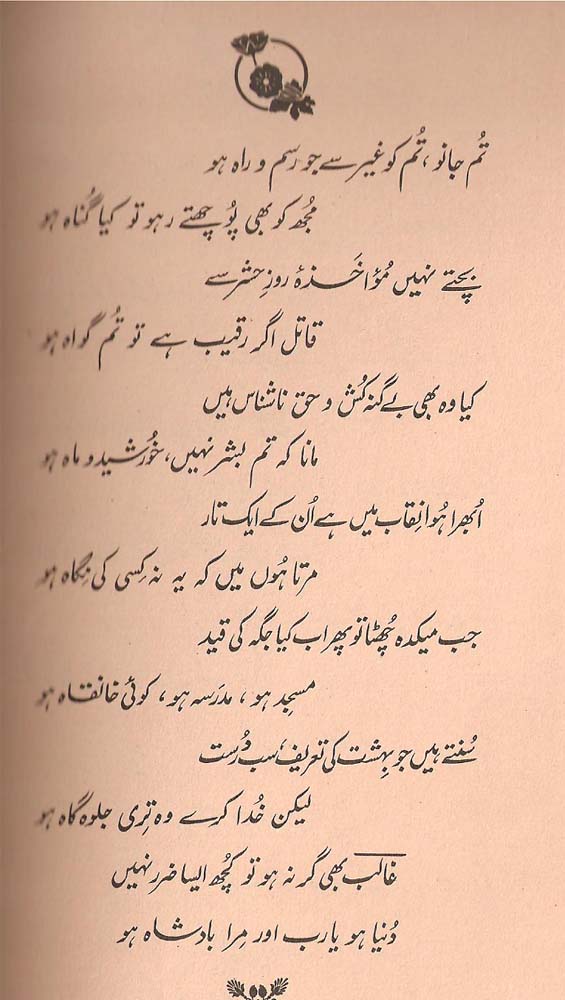 تُم جانو، تُم کو غیر سے جو رسم و راہ ہو
مُجھ کو بھی پُوچھتے رہو تو کیا گُناہ ہو
بچتے نہیں مُؤاخَذۂ روزِ حشر سے
قاتل اگر رقیب ہے تو تُم گواہ ہو
کیا وہ بھی بے گنہ کُش و حق ناشناس ہیں
مانا کہ تم بشر نہیں، خُورشید و ماہ ہو
اُبھرا ہُوا نِقاب میں ہے اُن کے ایک تار
مرتا ہُوں میں کہ یہ نہ کِسی کی نِگاہ ہو
جب میکدہ چُھٹا تو پھر اب کیا جگہ کی قید
مسجِد ہو، مدرَسہ ہو، کوئی خانقاہ ہو
سُنتے ہیں جو بِہشت کی تعریف، سب دُرست
لیکن خُدا کرے وہ تِری جلوہ گاہ ہو
غالبؔ بھی گر نہ ہو تو کُچھ ایسا ضرر نہیں
دُنیا ہو یارب اور مِرا بادشاہ ہو